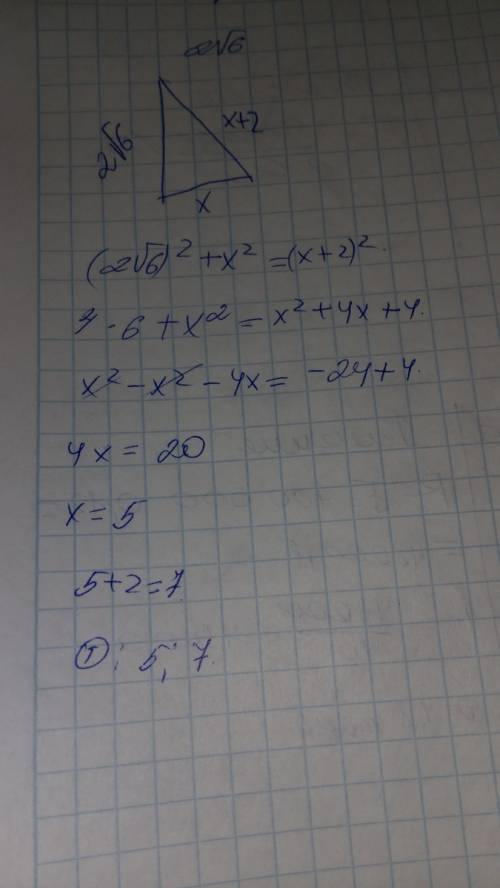 2√6
2√6
x+2
x
(2√6)² + x² = (x+2)².
4·6 + x² = x² + 4x + 4.
x² - x² - 4x = -24 + 4.
4x = 20
x = 5
5+2=7
Ⓣ: 5; 7.